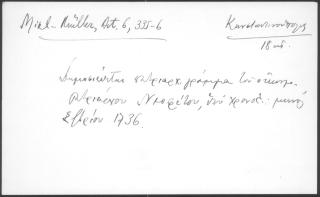 Mikl. - Müller, Act. 6, 335-6
Κωνσταντινούπολις
18 αἰ.
Δημοσιεύεται πατριαρχ. γράμμα τοῦ οἰκουμ.
πατριάρχου Νεοφύτου, ὑπὸ χρονολ. μηνὸς
1736